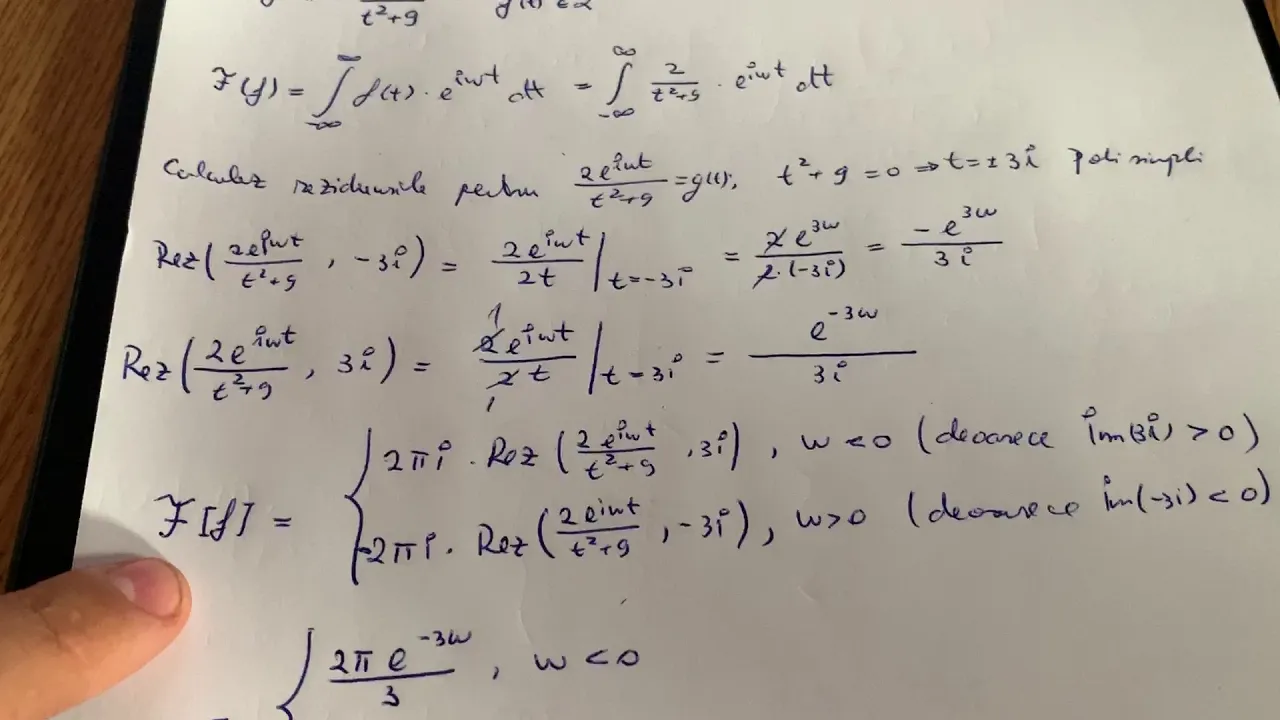 t²+9
F(f) = ∫_{-∞}^{∞} f(t) · e^{iwt} dt = ∫_{-∞}^{∞} 2/(t²+9) · e^{iwt} dt
Calculez reziduurile pentru 2e^{iwt}/(t²+9) = g(t), t²+9=0 ⇒ t=±3i poli simpli
Rez(2e^{iwt}/(t²+9), -3i) = 2e^{iwt}/2t |_{t=-3i} = 2e^{3w}/(2·(-3i)) = -e^{3w}/3i
Rez(2e^{iwt}/(t²+9), 3i) = 2e^{iwt}/2t |_{t=3i} = e^{-3w}/3i
F[f] = { 2πi · Rez(2e^{iwt}/(t²+9), 3i), w<0 (deoarece im(3i)>0)
-2πi · Rez(2e^{iwt}/(t²+9), -3i), w>0 (deoarece im(-3i)<0)
{ 2πe^{-3w}/3, w<0